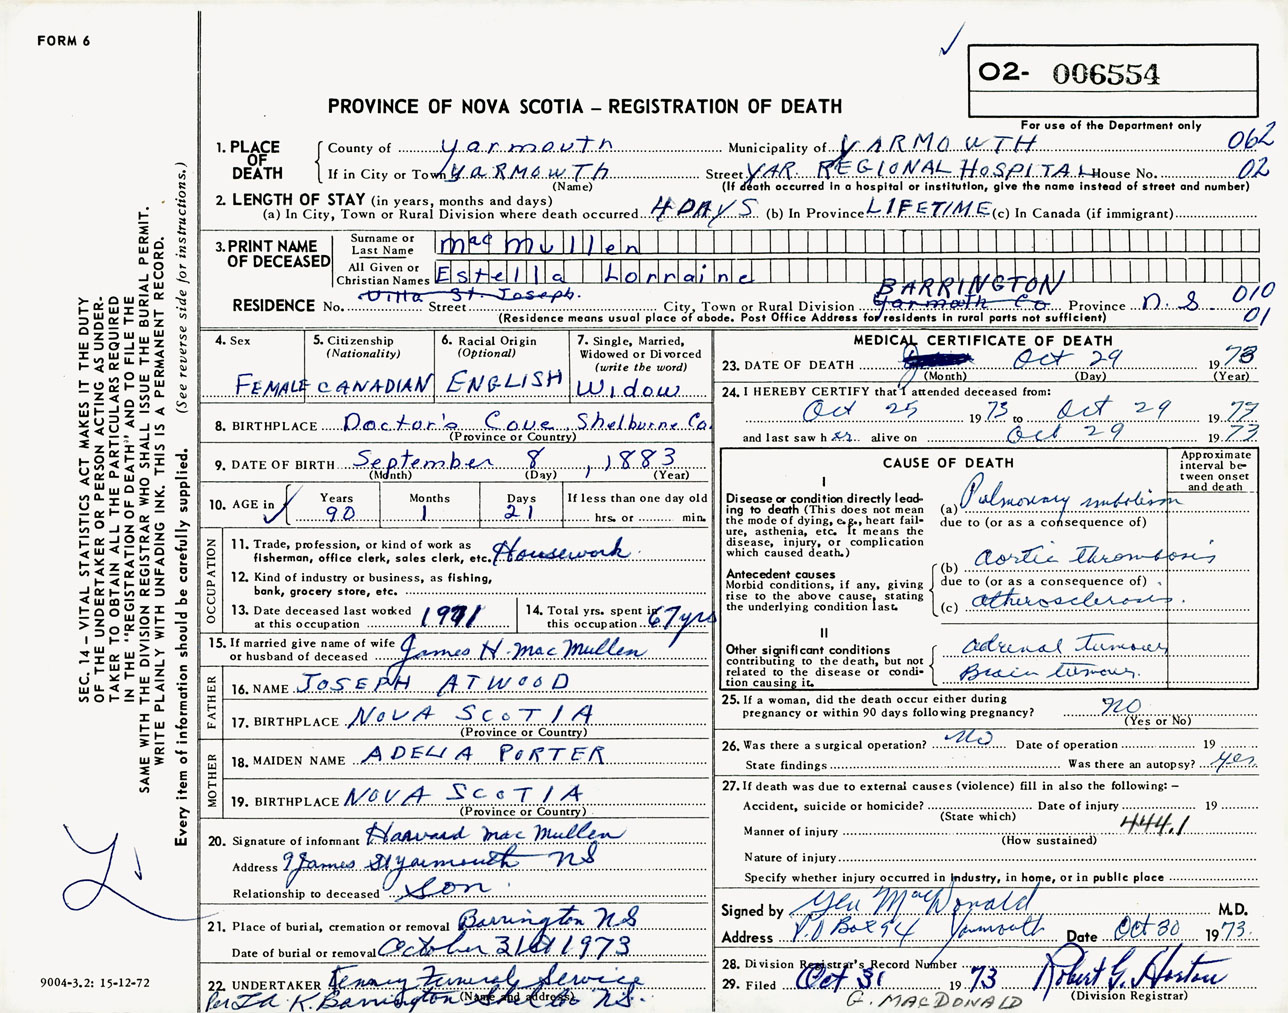 FORM 6
O2- 006554
PROVINCE OF NOVA SCOTIA – REGISTRATION OF DEATH
For use of the Department only
1. PLACE OF DEATH
County of Yarmouth Municipality of YARMOUTH 062
If in City or Town YARMOUTH Street YAR. REGIONAL HOSPITAL House No. 02
(Name) (If death occurred in a hospital or institution, give the name instead of street and number)
2. LENGTH OF STAY (in years, months and days)
(a) In City, Town or Rural Division where death occurred 4 DAYS (b) In Province LIFETIME (c) In Canada (if immigrant)
3. PRINT NAME OF DECEASED
Surname or Last Name Mac Mullen
All Given or Christian Names Estella Lorraine
BARRINGTON
Villa St. Joseph.
RESIDENCE No. Street City, Town or Rural Division Yarmouth Co Province N. S 010
(Residence means usual place of abode. Post Office Address for residents in rural parts not sufficient) 01
4. Sex FEMALE
5. Citizenship (Nationality) CANADIAN
6. Racial Origin (Optional) ENGLISH
7. Single, Married, Widowed or Divorced (write the word) WIDOW
8. BIRTHPLACE Doctor's Cove, Shelburne Co.
(Province or Country)
9. DATE OF BIRTH September 8, 1883
(Month) (Day) (Year)
10. AGE in Years 90 Months 1 Days 21 If less than one day old hrs. or min.
OCCUPATION
11. Trade, profession, or kind of work as fisherman, office clerk, sales clerk, etc. Housework
12. Kind of industry or business, as fishing, bank, grocery store, etc.
13. Date deceased last worked at this occupation 1971
14. Total yrs. spent in this occupation 67 yrs
15. If married give name of wife or husband of deceased James H. MacMullen
FATHER
16. NAME JOSEPH ATWOOD
17. BIRTHPLACE NOVA SCOTIA
(Province or Country)
MOTHER
18. MAIDEN NAME ADELIA PORTER
19. BIRTHPLACE NOVA SCOTIA
(Province or Country)
20. Signature of informant Harvard Mac Mullen
Address 9 James St Yarmouth NS
Relationship to deceased Son.
21. Place of burial, cremation or removal Barrington NS
Date of burial or removal October 31st 1973
22. UNDERTAKER Kenny Funeral Service
(Name and address)
Per Id K. Barrington Shel Co NS.
MEDICAL CERTIFICATE OF DEATH
23. DATE OF DEATH Oct 29 1973
(Month) (Day) (Year)
24. I HEREBY CERTIFY that I attended deceased from:
Oct 25 1973 to Oct 29 1973
and last saw her alive on Oct 29 1973
CAUSE OF DEATH
Approximate interval between onset and death
I
Disease or condition directly leading to death (This does not mean the mode of dying, e.g., heart failure, asthenia, etc. It means the disease, injury, or complication which caused death.)
(a) Pulmonary embolism
due to (or as a consequence of)
Antecedent causes
Morbid conditions, if any, giving rise to the above cause, stating the underlying condition last.
(b) aortic thrombosis
due to (or as a consequence of)
(c) atherosclerosis.
II
Other significant conditions contributing to the death, but not related to the disease or condition causing it.
adrenal tumour
Brain tumour.
25. If a woman, did the death occur either during pregnancy or within 90 days following pregnancy? NO
(Yes or No)
26. Was there a surgical operation? No Date of operation 19
State findings Was there an autopsy? yes
27. If death was due to external causes (violence) fill in also the following: –
Accident, suicide or homicide? Date of injury 19
(State which)
Manner of injury 444.1
(How sustained)
Nature of injury
Specify whether injury occurred in industry, in home, or in public place
Signed by Geo MacDonald M.D.
Address P.O Box 94 Yarmouth Date Oct 30 1973.
28. Division Registrar's Record Number
29. Filed Oct 31 1973 Robert G. Horton
(Division Registrar)
G. MACDONALD
SEC. 14 – VITAL STATISTICS ACT MAKES IT THE DUTY
OF THE UNDERTAKER OR PERSON ACTING AS UNDER-
TAKER TO OBTAIN ALL THE PARTICULARS REQUIRED
IN THE "REGISTRATION OF DEATH" AND TO FILE THE
SAME WITH THE DIVISION REGISTRAR WHO SHALL ISSUE THE BURIAL PERMIT.
WRITE PLAINLY WITH UNFADING INK. THIS IS A PERMANENT RECORD.
Every item of information should be carefully supplied. (See reverse side for instructions.)
9004-3.2: 15-12-72